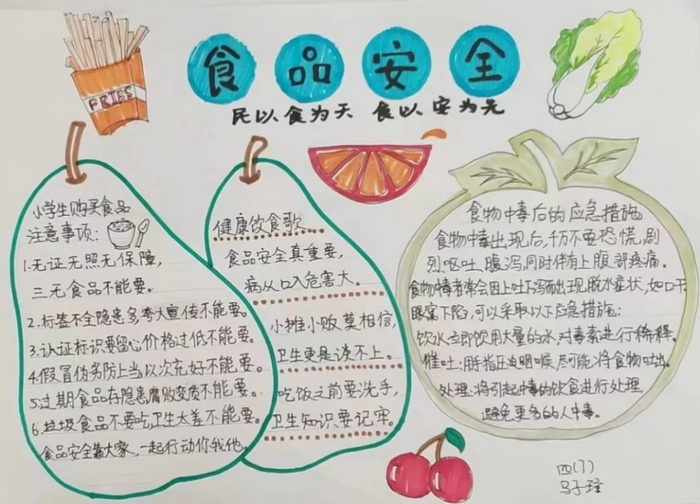 FRIES
食品安全
民以食为天 食以安为先
小学生购买食品
注意事项:
1.无证无照无保障,
三无食品不能要.
2.标签不全隐患多,夸大宣传不能要.
3.认证标识要留心,价格过低不能要.
4.假冒伪劣防上当,以次充好不能要.
5.过期食品存隐患,腐败变质不能要.
6.垃圾食品不要吃,卫生太差不能要.
食品安全靠大家,一起行动你我他.
健康饮食歌
食品安全真重要,
病从口入危害大.
小摊小贩莫相信,
卫生更是谈不上.
吃饭之前要洗手,
卫生知识要记牢.
食物中毒后的应急措施
食物中毒出现后,千万不要恐慌,剧
烈呕吐、腹泻,同时伴有上腹部疼痛.
食物中毒者常会因上吐下泻而出现脱水症状,如口干
眼窝下陷,可以采取以下应急措施:
饮水:立即饮用大量的水,对毒素进行稀释.
催吐:用手指压迫咽喉,尽可能将食物吐出.
处理:将引起中毒的饮食进行处理
避免更多的人中毒。
四(7)
马子瑾